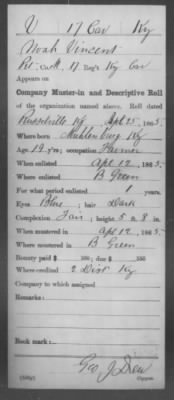 V 17 Cav Ky
Noah Vincent
Pvt. Co. H, 17 Reg't Ky Cav
Appears on
Company Muster-in and Descriptive Roll
of the organization named above. Roll dated
Russellville Ky Apl 25, 1865.
Where born Muhlenburg Ky
Age 19 y'rs; occupation Farmer
When enlisted Apl 12, 1865.
Where enlisted B Green
For what period enlisted 1 years.
Eyes Blue; hair Dark
Complexion Fair; height 5 ft. 8 in.
When mustered in Apl 12, 1865.
Where mustered in B Green
Bounty paid $ 100; due $ 100
Where credited 2 Dist Ky
Company to which assigned
Remarks:
Book mark:
Geo J Drew
Copyist.